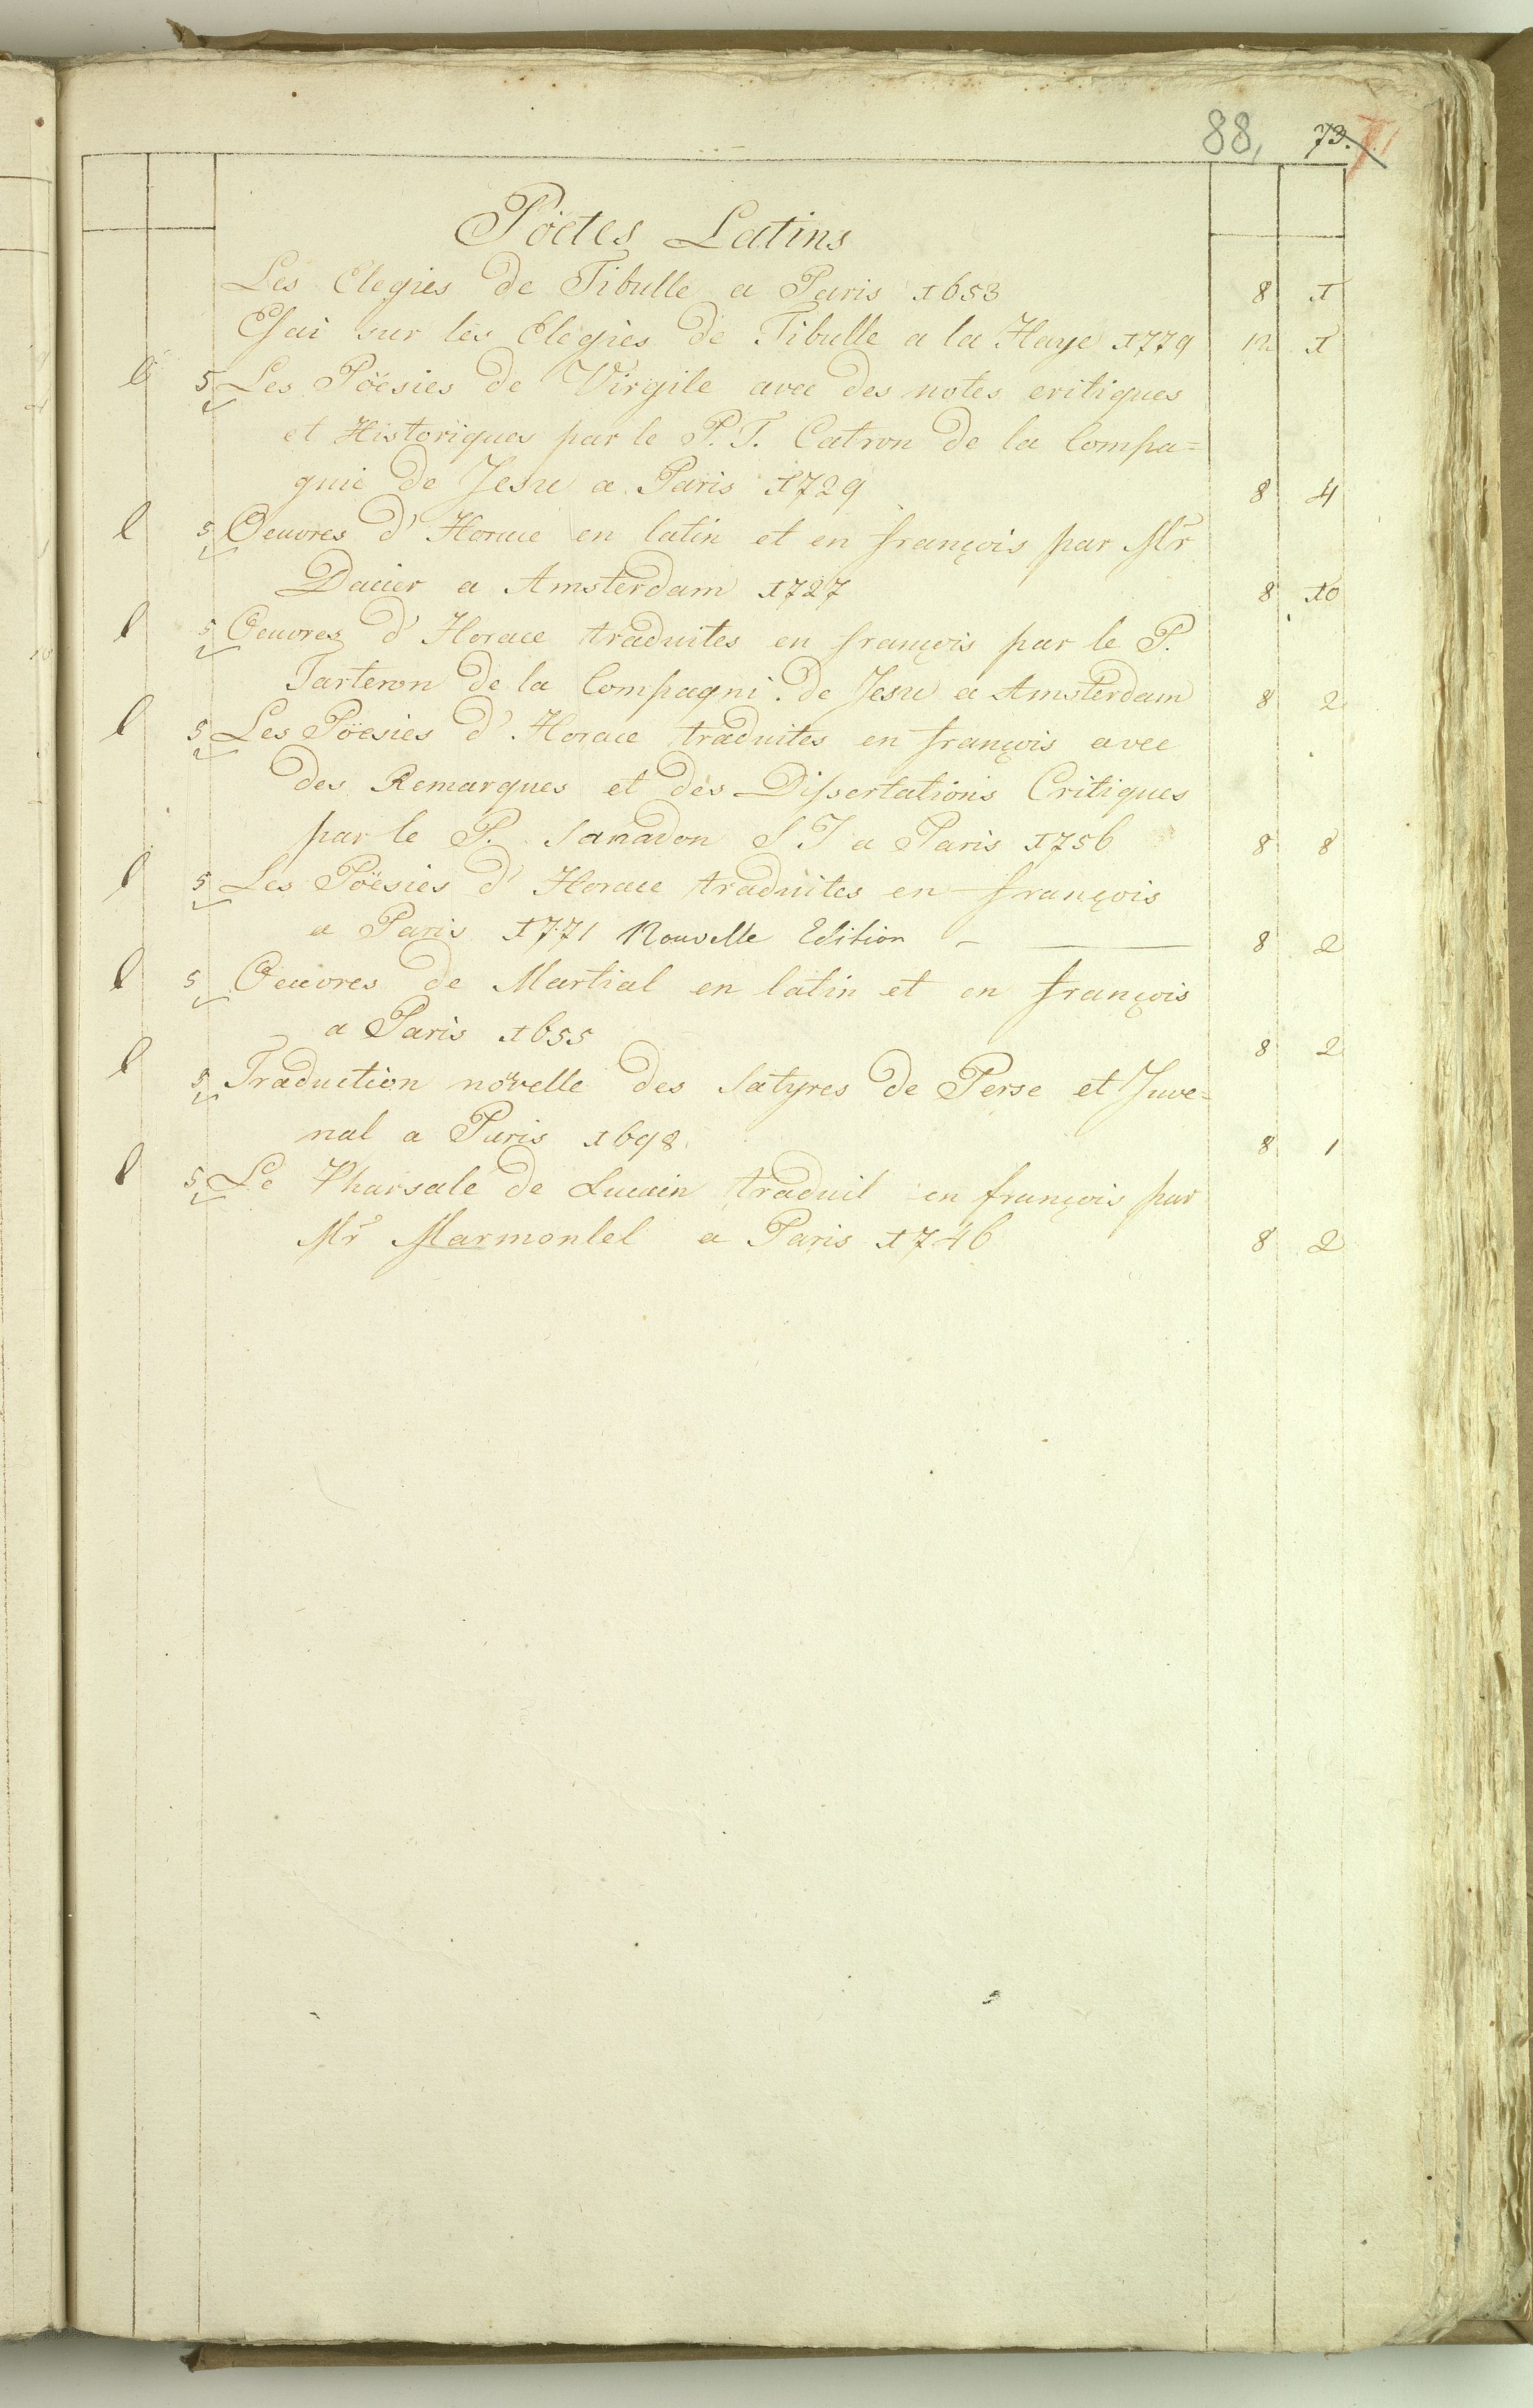 88, 73. 71
Pöetes Latins
Les Elegies de Tibulle a Paris 1653 8 1
Essai sur les Elegies de Tibulle a la Haye 1779 12 1
l 5 Les Pöesies de Virgile avec des notes critiques
et Historiques par le P. T. Catron de la Compa=
gnie de Jesu a Paris 1729 8 4
l 5 Oeuvres d'Horace en latin et en françois par Mr
Dacier a Amsterdam 1727 8 10
l 5 Oeuvres d'Horace traduites en françois par le P.
Tarteron de la Compagni. de Jesu a Amsterdam 8 2
l 5 Les Pöesies d'Horace traduites en françois avec
des Remarques et des Dissertations Critiques
par le P. Sanadon S J a Paris 1756 8 8
l 5 Les Pöesies d'Horace traduites en françois
a Paris 1771 Nouvelle Edition - 8 2
l 5 Oeuvres de Martial en latin et en françois
a Paris 1655 8 2
l 5 Traduction növelle des Satyres de Perse et Juve=
nal a Paris 1698. 8 1
l 5 Le Pharsale de Lucain traduit en françois par
Mr Marmontel a Paris 1746 8 2